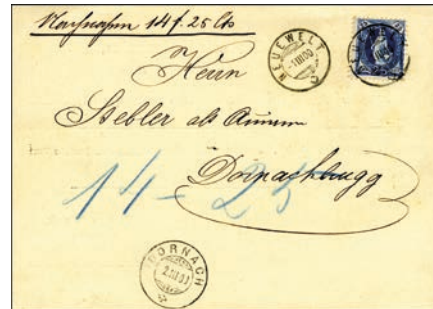 Nachnahme 14 f. 25 Cts
NEUEWELT
-1 III 00
Herrn
Stebler alt Ammann
Dornachbrugg
14 - 25
DORNACH
2. III 00